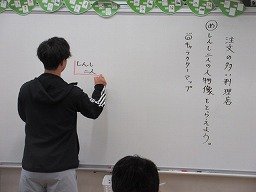 注文の多い料理店
め しんし二人の人物像をとらえよう。
キャラクターマップ
しんし
二人